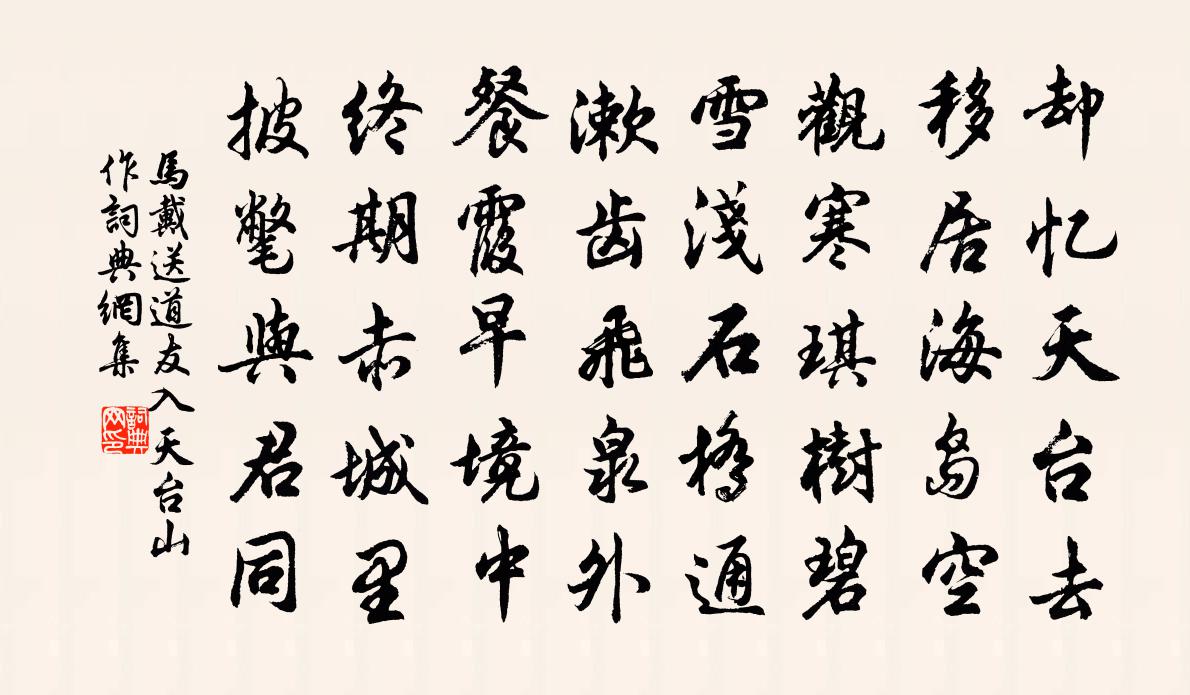 却忆天台去
移居海岛空
觀寒琪樹碧
雪淺石橋通
漱齿飛泉外
餐霞早境中
终期赤城里
披氅與君同
馬戴送道友入天台山
作詞典網集
詞典网印